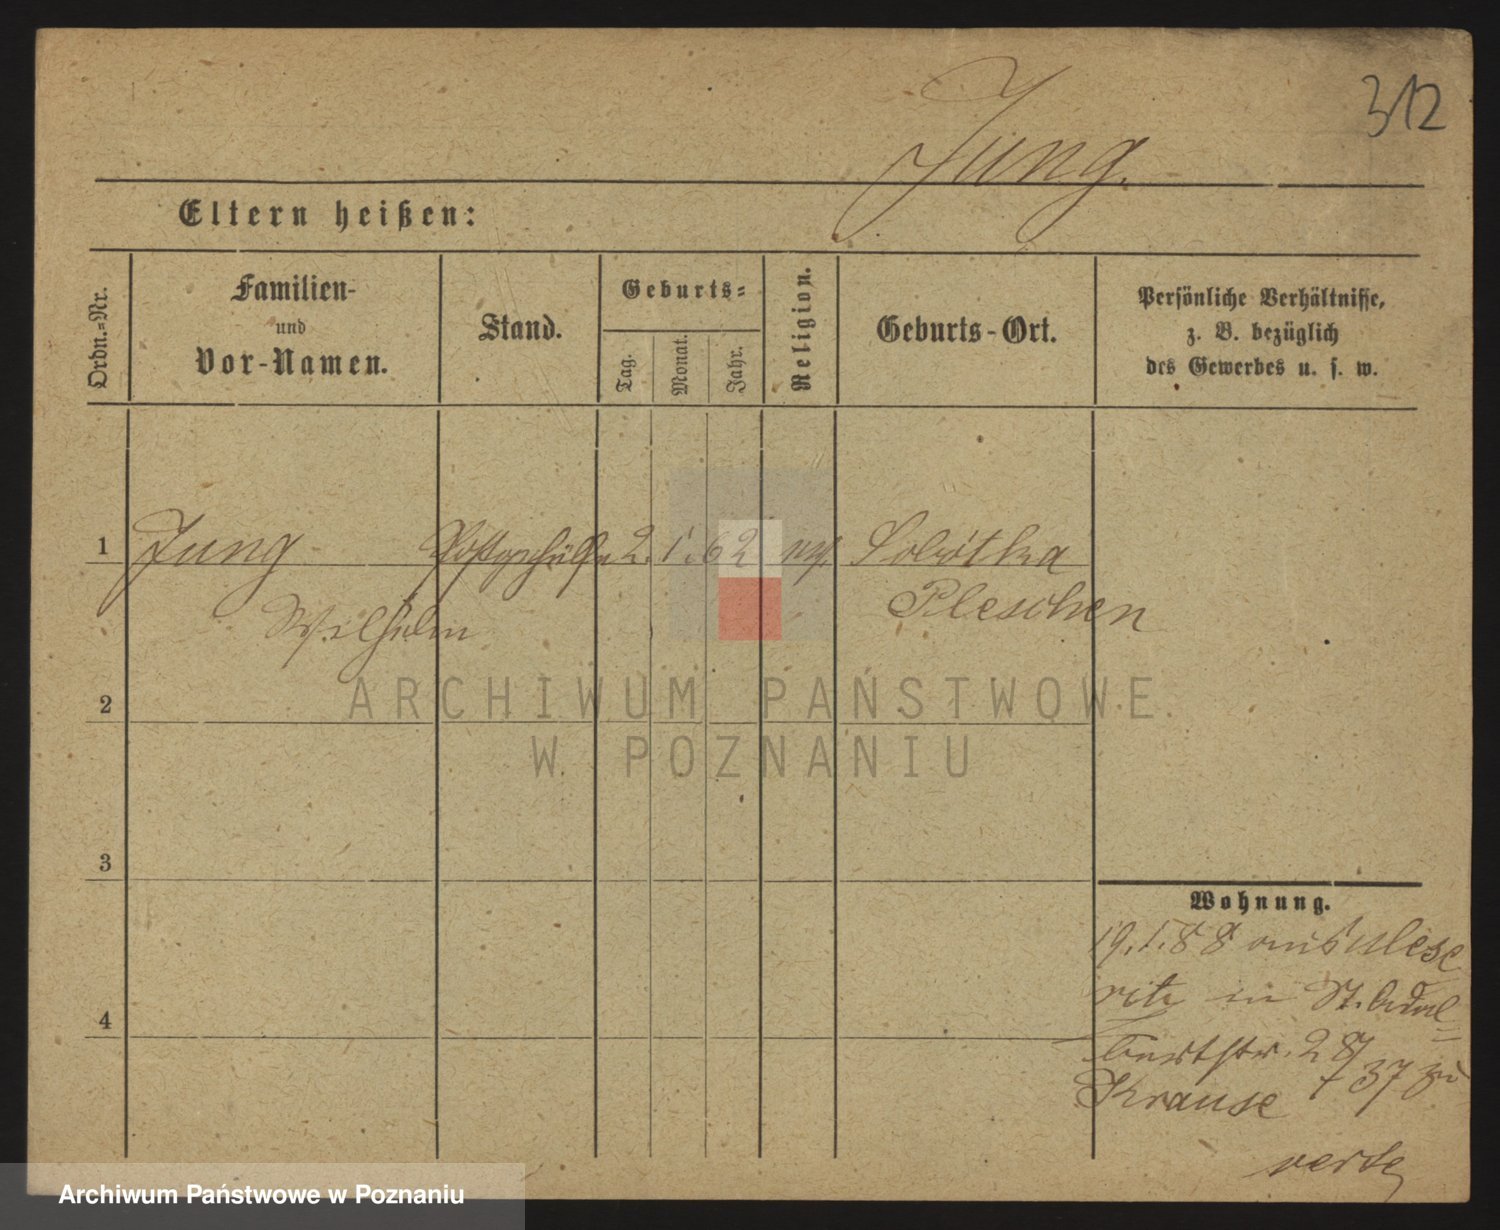 312
Jung.
Eltern heißen:
Ordn.=Nr.
Familien-
und
Vor-Namen.
Stand.
Geburts=
Tag.
Monat.
Jahr.
Religion.
Geburts-Ort.
Persönliche Verhältnisse,
z. B. bezüglich
des Gewerbes u. s. w.
1 Jung Postgehülfe 2. 1. 62 Sobotka
Wilhelm Pleschen
2
3
4
ARCHIWUM PAŃSTWOWE
W POZNANIU
Wohnung.
19.1.88 aus Mese
ritz in St. Adal=
bertstr. 28/37 zu
Krause
Archiwum Państwowe w Poznaniu